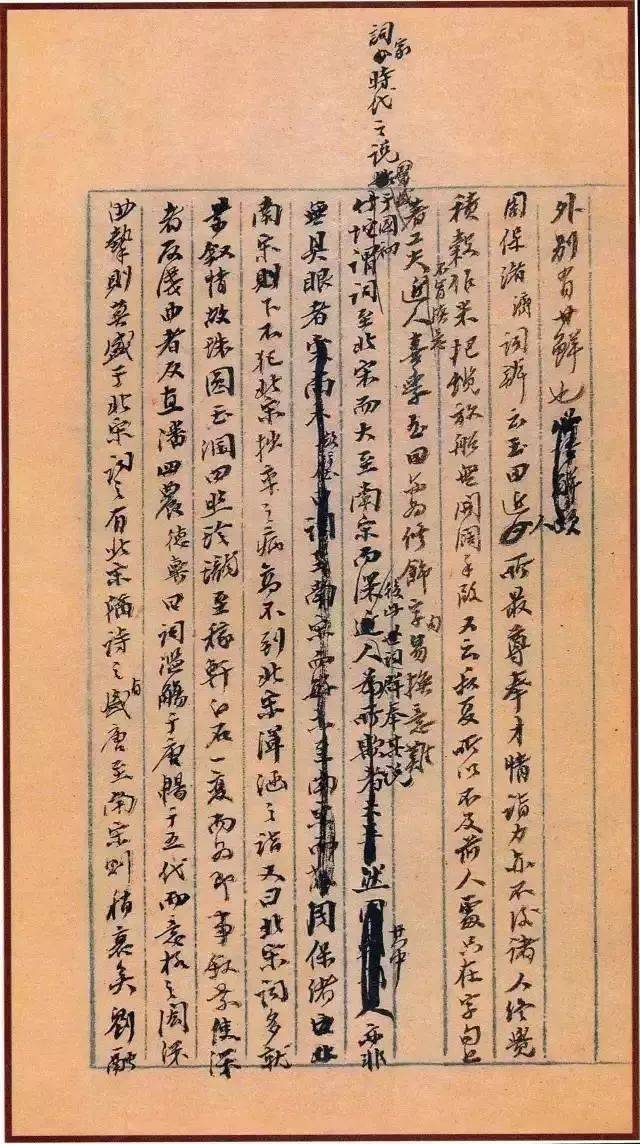 外別有甘鮮也
周保緒濟詞辨云玉田近人所最尊奉才情詣力亦不後諸人終覺
積穀作米把纜放船無開闊手段又云叔夏所以不及前人處只在字句上
著工夫不肯換意近人喜學玉田亦為修飾字句易換意難
詞家時代之說盛于國初竹垞謂詞至北宋而大至南宋而深後此詞人群奉其說然其中亦非
無具眼者周保緒曰
南宋則下不犯北宋拙率之病高不到北宋渾涵之詣又曰北宋詞多就
景敘情故珠圓玉潤四照玲瓏至稼軒白石一變而為即事敘景使深
者反淺曲者反直潘四農德輿曰詞濫觴于唐暢于五代而意格之閎深
曲摯則莫盛于北宋詞之有北宋猶詩之有盛唐至南宋則稍衰矣劉融